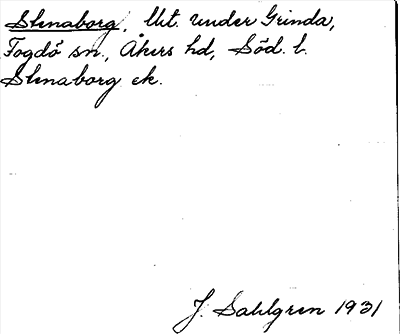 Stenaborg, Utt. under Grinda,
Fogdö sn., Åkers hd, Söd. l.
Stenaborg ek.
J. Sahlgren 1931